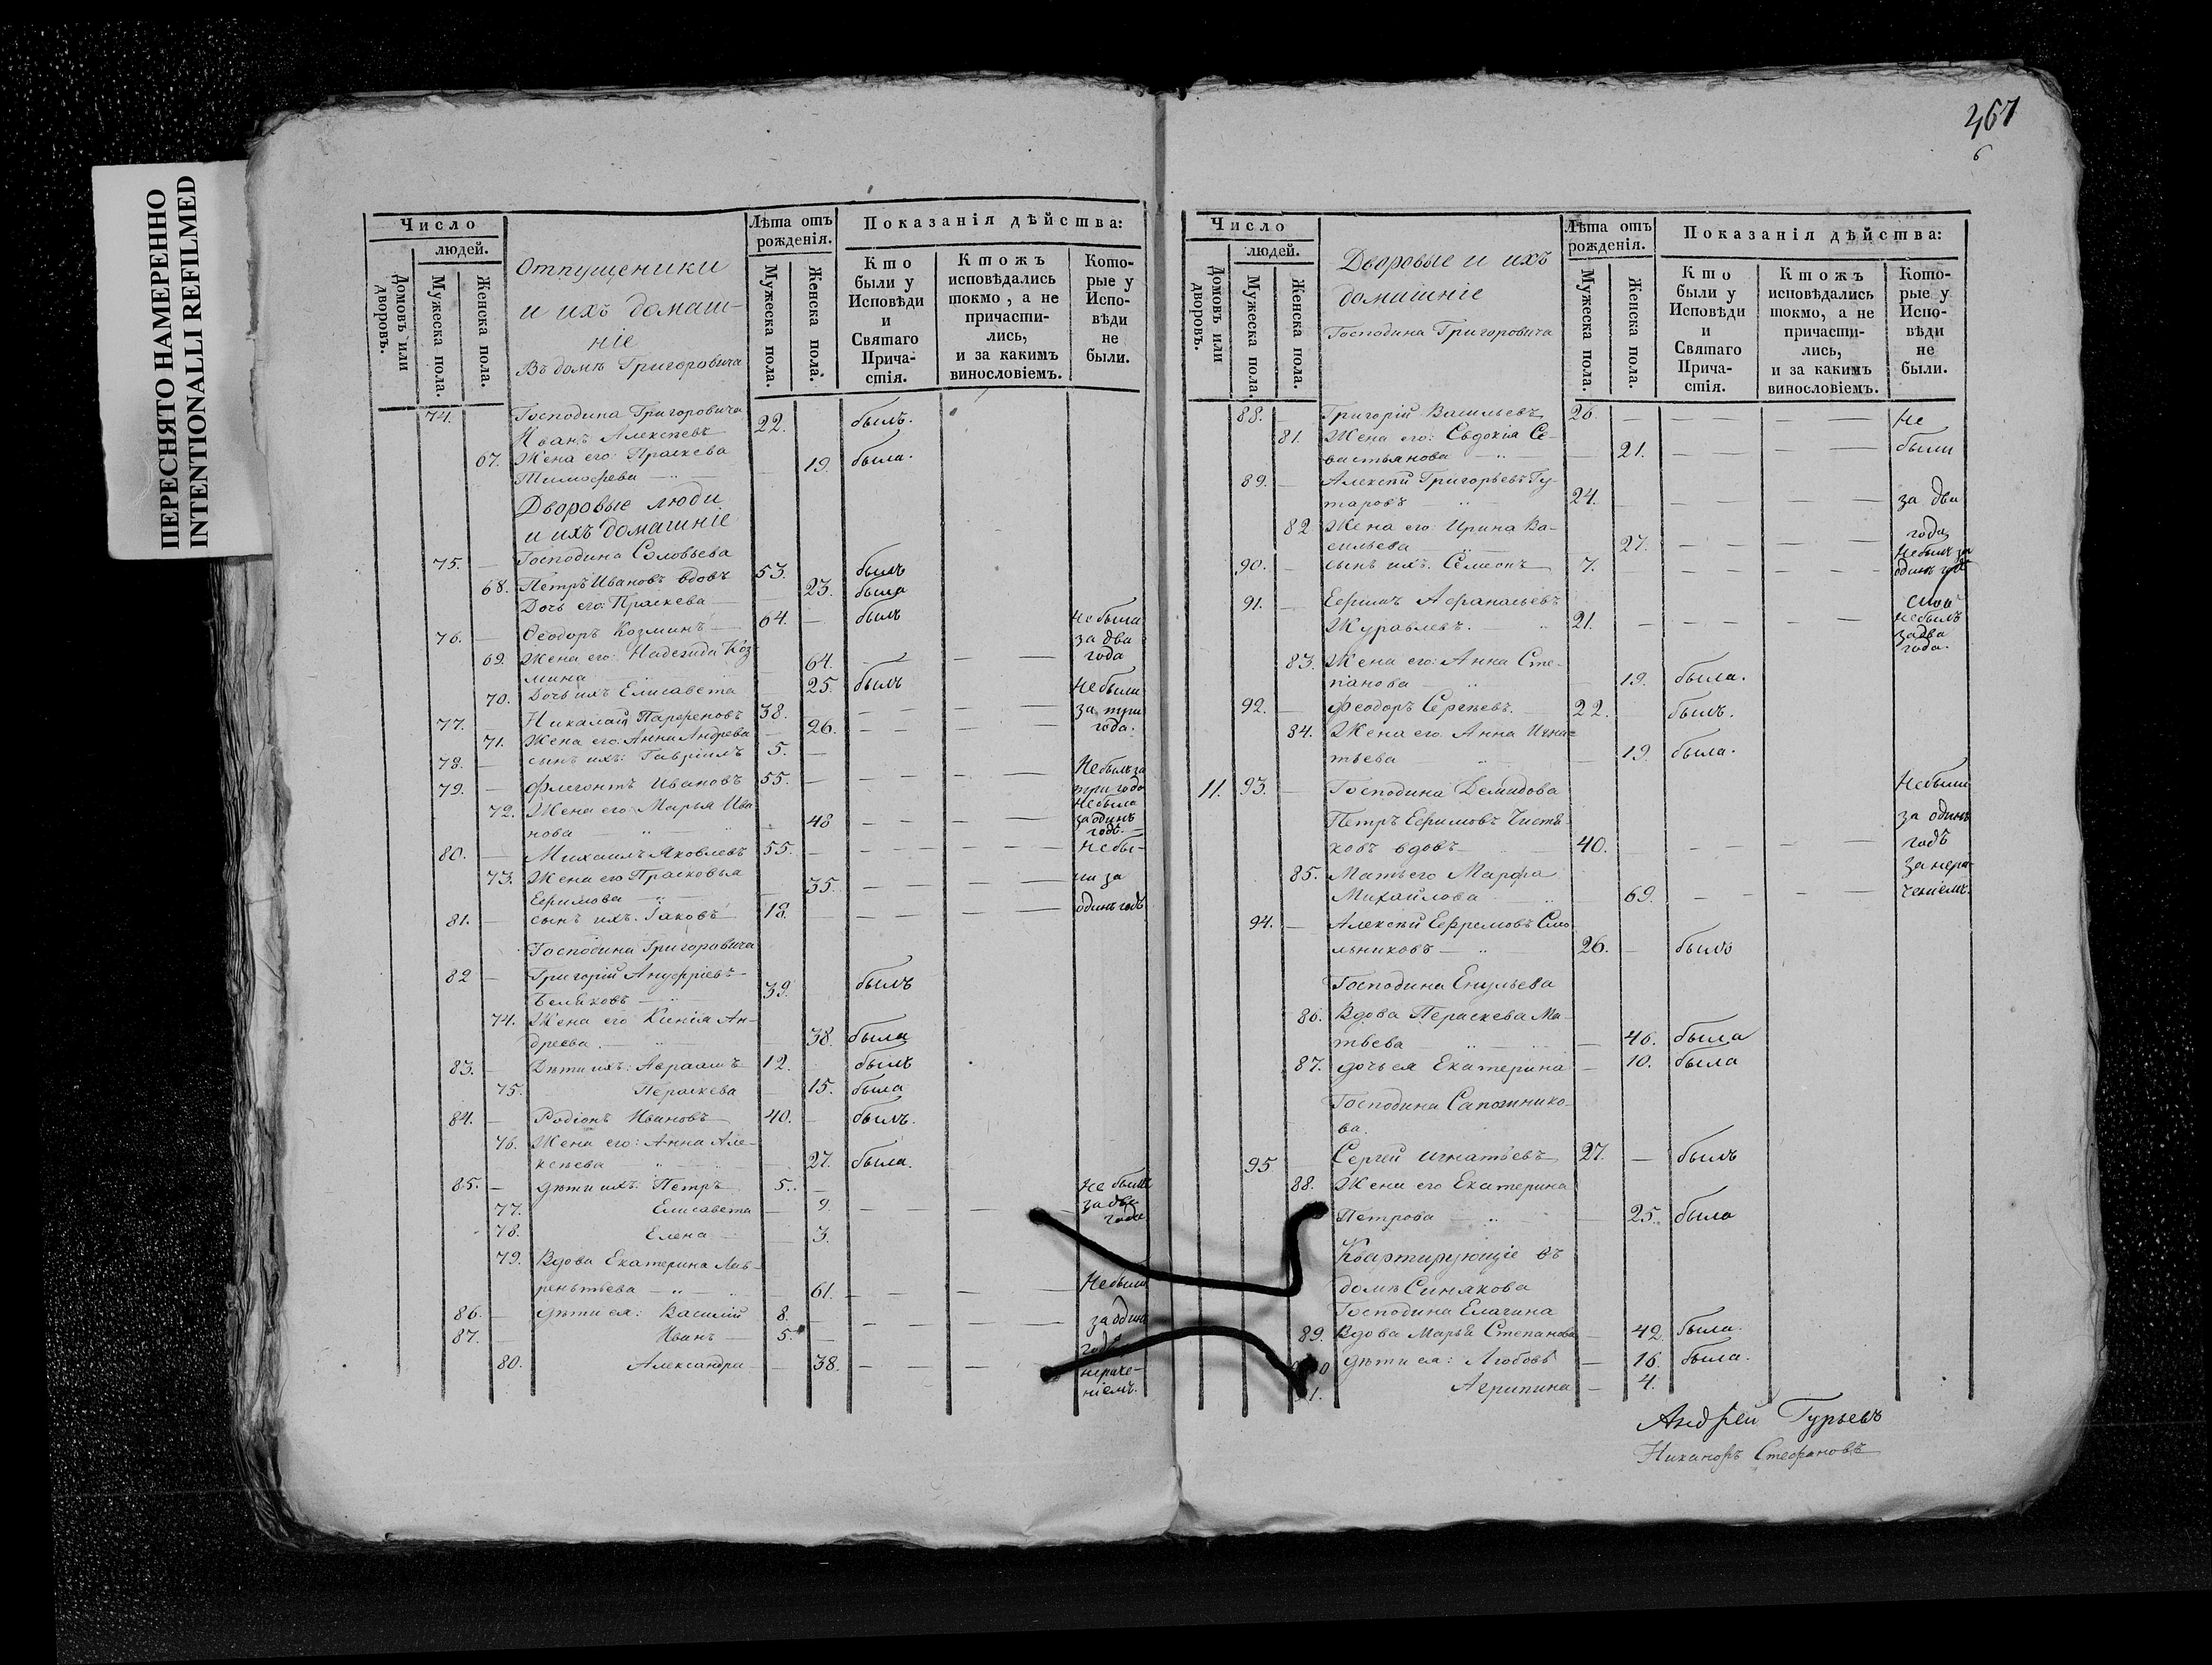 ПЕРЕСНЯТО НАМЕРЕННО
INTENTIONALLI REFILMED
467
6
Число
людей.
Домовъ или дворовъ.
Мужеска пола.
Женска пола.
Отпущеники
и ихъ домаш-
ніе
Въ домѣ Григоровича
Лѣта отъ рожденія.
Мужеска пола.
Женска пола.
Показанія дѣйства:
Кто были у Исповѣди и Святаго Прича-стія.
Ктожъ исповѣдались токмо, а не причасти-лись, и за какимъ винословіемъ.
Кото-рые у Испо-вѣди не были.
74. Господина Григоровича
Иванъ Алексѣевъ 22. былъ.
67. Жена его: Праскева
Тимофеева 19. была.
Дворовые люди
и ихъ домашніе
Господина Соловьева
75. — Петръ Ивановъ вдовъ 53. былъ
68. Дочь его: Праскева — 23. была
76. — Ѳеодоръ Козминъ — 64. — былъ
69. Жена его: Надежда Коз-
мина 64. — — — Не была за два года
70. Дочь ихъ Елисавета 25. былъ
77. Николай Парфеновъ 38. — — — Не были
71. Жена его: Анна Андреева — 26. — — за три
78. — сынъ ихъ: Гавріилъ 5. — года.
79. — Флегонтъ Ивановъ 55. — — — — Не былъ за три года
72. Жена его Марья Ива
нова — 48 — — — Не была за одинъ годъ. —
80. — Михаилъ Яковлевъ 55. — — — — Не бы-
73. Жена его Прасковья
Ефимова — 35. — — — ли за
81. — сынъ ихъ. Іаковъ 18. — — — — одинъ годъ
Господина Григоровича
82 — Григорій Ануфріевъ
Беляковъ — 39. былъ
74. Жена его Ксенія Ан-
дреева. — 38. была
83. — Дѣти ихъ: Авраамъ 12. былъ
75. Пераскева — 15. была
84. — Родіонъ Ивановъ 40. — былъ.
76. Жена его: Анна Але-
ксѣева — 27. была.
85. — дѣти ихъ. Петръ 5. — Не были
77. Елисавета — 9. — — — — за два
78. Елена — 3. года
79. Вдова Екатерина Лав-
рентьева — 61. — — — Не были
86. — дѣти ея: Василій 8. — — — — за один
87. — Иванъ — 5. — годъ
80. Александра — 38. — — — нераче-
ніемъ.
Число
людей.
Домовъ или дворовъ.
Мужеска пола.
Женска пола.
Дворовые и ихъ
домашніе
Господина Григоровича
Лѣта отъ рожденія.
Мужеска пола.
Женска пола.
Показанія дѣйства:
Кто были у Исповѣди и Святаго Прича-стія.
Ктожъ исповѣдались токмо, а не причасти-лись, и за какимъ винословіемъ.
Кото-рые у Испо-вѣди не были.
88. — Григорій Васильевъ 26. — — — — Не
81. Жена его: Евдокія Се-
вастьянова — 21. — — — были
89. — Алексѣй Григорьевъ Гу-
таровъ 24. — — — за два
82 Жена его: Ирина Ва-
сильева — 27. — — — года
90. — сынъ ихъ. Симеонъ 7. — — — Не былъ за одинъ годъ
91. — Ефимъ Афанасьевъ
Журавлевъ. — 21. — — — — Не былъ за два года.
83. Жена его: Анна Сте-
панова — 19. была.
92. — Феодоръ Сергѣевъ. 22. былъ.
84. Жена его Анна Игна-
тьева — 19. была.
11. 93. — Господина Демидова Не были
Петръ Ефимовъ Чистя- за одинъ
ковъ вдовъ — 40. — — — — годъ
85. Мать его Марфа за нера-
Михайлова 69. — — — ченіемъ.
94. — Алексѣй Ефремовъ Смо
льниковъ — 26. — былъ
Господина
86. Вдова Пераскева Ма-
твеева — 46. была
87. дочь ея Екатерина — 10. была
Господина Сапожнико-
ва.
95 Сергей Игнатьевъ 27. — былъ
88. Жена его Екатерина
Петрова — 25. была
Квартирующіе въ
домѣ Синякова
Господина Елагина
89. Вдова Марья Степанова — 42. была.
90 дѣти ея: Любовь — 16. была.
91. Агрипина — 4.
Андрей Гурьевъ
Никаноръ Стефановъ